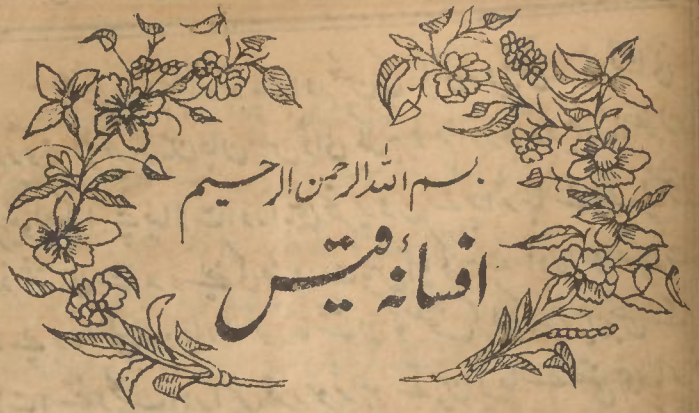 بسم اللہ الرحمن الرحیم
افسانۂ قیس